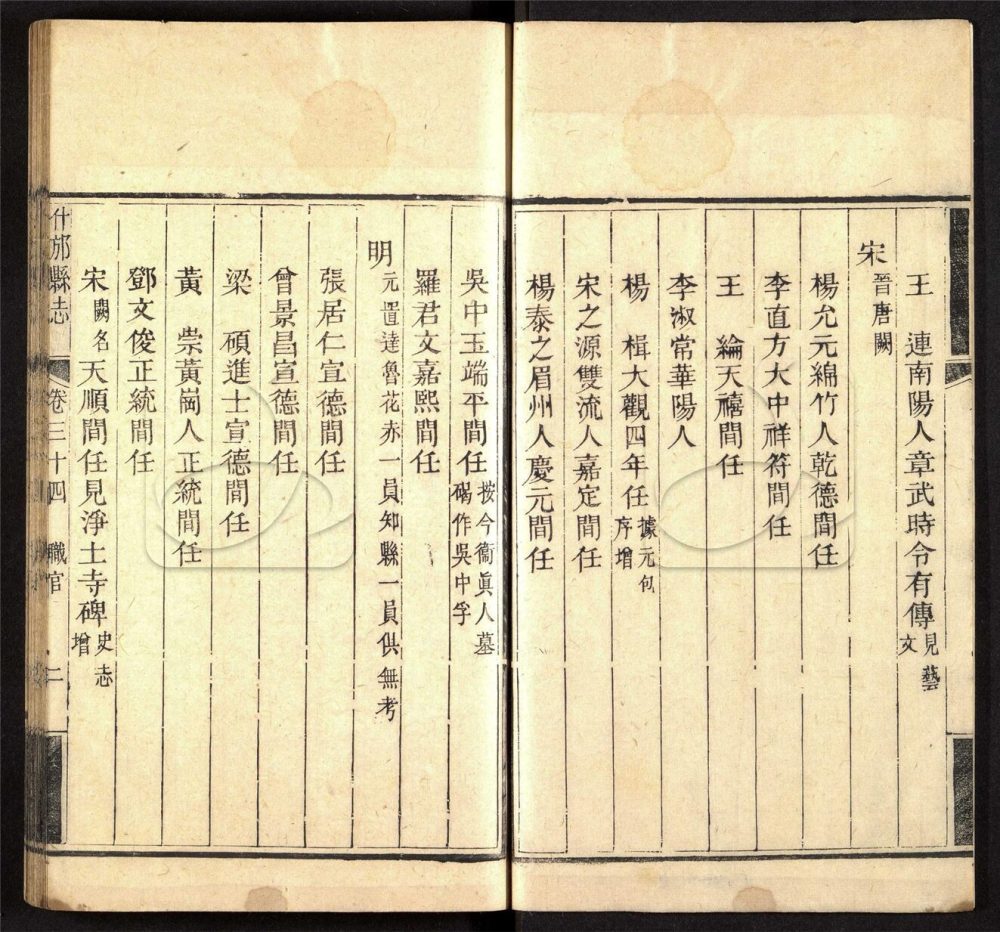 王　連南陽人章武時令有傳見藝文
宋晉唐闕
楊允元綿竹人乾德間任
李直方大中祥符間任
王　綸天禧間任
李淑常華陽人
楊　楫大觀四年任據元包序增
宋之源雙流人嘉定間任
楊泰之眉州人慶元間任
吳中玉端平間任按今衞眞人墓碣作吳中孚
羅君文嘉熙間任
明元置達魯花赤一員知縣一員供無考
張居仁宣德間任
曾景昌宣德間任
梁　碩進士宣德間任
黃　崇黃崗人正統間任
鄧文俊正統間任
宋闕名天順間任見淨土寺碑史志增
什邡縣志　卷三十四　職官　二